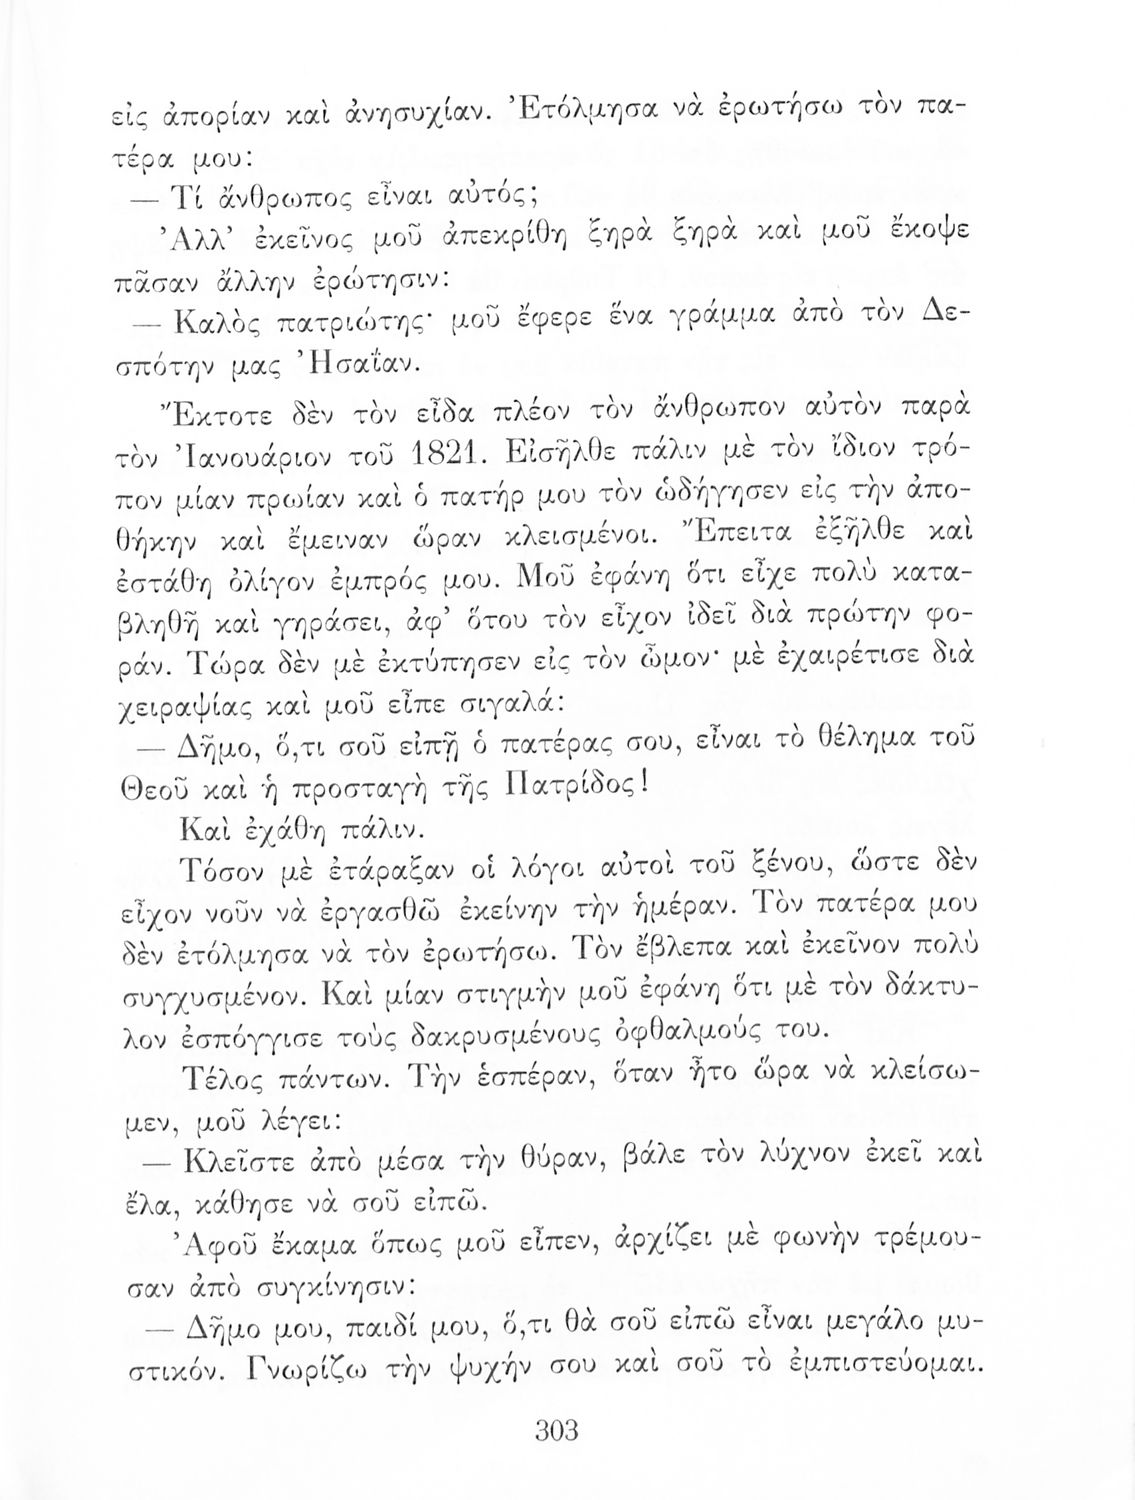 εἰς ἀπορίαν καὶ ἀνησυχίαν. Ἐτόλμησα νὰ ἐρωτήσω τὸν πα-
τέρα μου:
— Τί ἄνθρωπος εἶναι αὐτός;
Ἀλλ’ ἐκεῖνος μοῦ ἀπεκρίθη ξηρὰ ξηρὰ καὶ μοῦ ἔκοψε
πᾶσαν ἄλλην ἐρώτησιν:
— Καλὸς πατριώτης· μοῦ ἔφερε ἕνα γράμμα ἀπὸ τὸν Δε-
σπότην μας Ἠσαΐαν.
Ἔκτοτε δὲν τὸν εἶδα πλέον τὸν ἄνθρωπον αὐτὸν παρὰ
τὸν Ἰανουάριον τοῦ 1821. Εἰσῆλθε πάλιν μὲ τὸν ἴδιον τρό-
πον μίαν πρωίαν καὶ ὁ πατήρ μου τὸν ὡδήγησεν εἰς τὴν ἀπο-
θήκην καὶ ἔμειναν ὥραν κλεισμένοι. Ἔπειτα ἐξῆλθε καὶ
ἐστάθη ὀλίγον ἐμπρός μου. Μοῦ ἐφάνη ὅτι εἶχε πολὺ κατα-
βληθῆ καὶ γηράσει, ἀφ’ ὅτου τὸν εἶχον ἰδεῖ διὰ πρώτην φο-
ράν. Τώρα δὲν μὲ ἐκτύπησεν εἰς τὸν ὦμον· μὲ ἐχαιρέτισε διὰ
χειραψίας καὶ μοῦ εἶπε σιγαλά:
— Δῆμο, ὅ,τι σοῦ εἰπῇ ὁ πατέρας σου, εἶναι τὸ θέλημα τοῦ
Θεοῦ καὶ ἡ προσταγὴ τῆς Πατρίδος!
Καὶ ἐχάθη πάλιν.
Τόσον μὲ ἐτάραξαν οἱ λόγοι αὐτοὶ τοῦ ξένου, ὥστε δὲν
εἶχον νοῦν νὰ ἐργασθῶ ἐκείνην τὴν ἡμέραν. Τὸν πατέρα μου
δὲν ἐτόλμησα νὰ τὸν ἐρωτήσω. Τὸν ἔβλεπα καὶ ἐκεῖνον πολὺ
συγχυσμένον. Καὶ μίαν στιγμὴν μοῦ ἐφάνη ὅτι μὲ τὸν δάκτυ-
λον ἐσπόγγισε τοὺς δακρυσμένους ὀφθαλμούς του.
Τέλος πάντων. Τὴν ἑσπέραν, ὅταν ἦτο ὥρα νὰ κλείσω-
μεν, μοῦ λέγει:
— Κλεῖστε ἀπὸ μέσα τὴν θύραν, βάλε τὸν λύχνον ἐκεῖ καὶ
ἔλα, κάθησε νὰ σοῦ εἰπῶ.
Ἀφοῦ ἔκαμα ὅπως μοῦ εἶπεν, ἀρχίζει μὲ φωνὴν τρέμου-
σαν ἀπὸ συγκίνησιν:
— Δῆμο μου, παιδί μου, ὅ,τι θὰ σοῦ εἰπῶ εἶναι μεγάλο μυ-
στικόν. Γνωρίζω τὴν ψυχήν σου καὶ σοῦ τὸ ἐμπιστεύομαι.
303